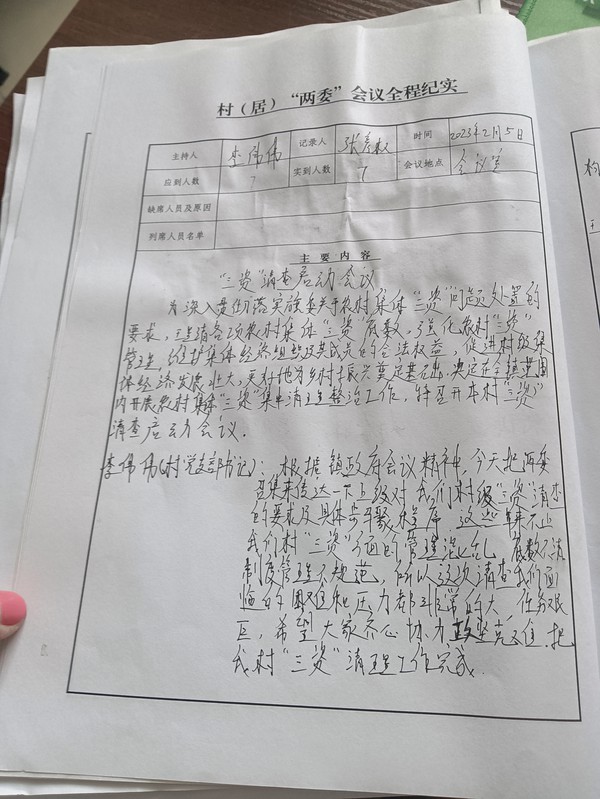 村（居）“两委”会议全程纪实
主持人 李伟伟 记录人 张彦权 时间 2023年2月5日
应到人数 7 实到人数 7 会议地点 会议室
缺席人员及原因
列席人员名单
主要内容
“三资”清查启动会议
为深入贯彻落实旗委关于农村集体“三资”问题处置的
要求，理清各项农村集体“三资”底数，强化农村“三资”
管理，维护集体经济组织及其成员的合法权益，促进村级集
体经济发展壮大，更好地为乡村振兴奠定基础，决定在全镇范围
内开展农村集体“三资”集中清理整治工作，特召开本村“三资”
清查启动会议。
李伟伟（村党支部书记）：根据镇政府会议精神，今天把两委
召集来传达一下上级对我们村级“三资”清查
的要求及具体步骤程序，这些年不止
我们村“三资”方面的管理混乱，底数不清
制度管理不规范，所以这次清查我们面
临的困难和压力都非常的大，任务艰
巨，希望大家齐心协力 坚克 把
我村“三资”清理工作完成。